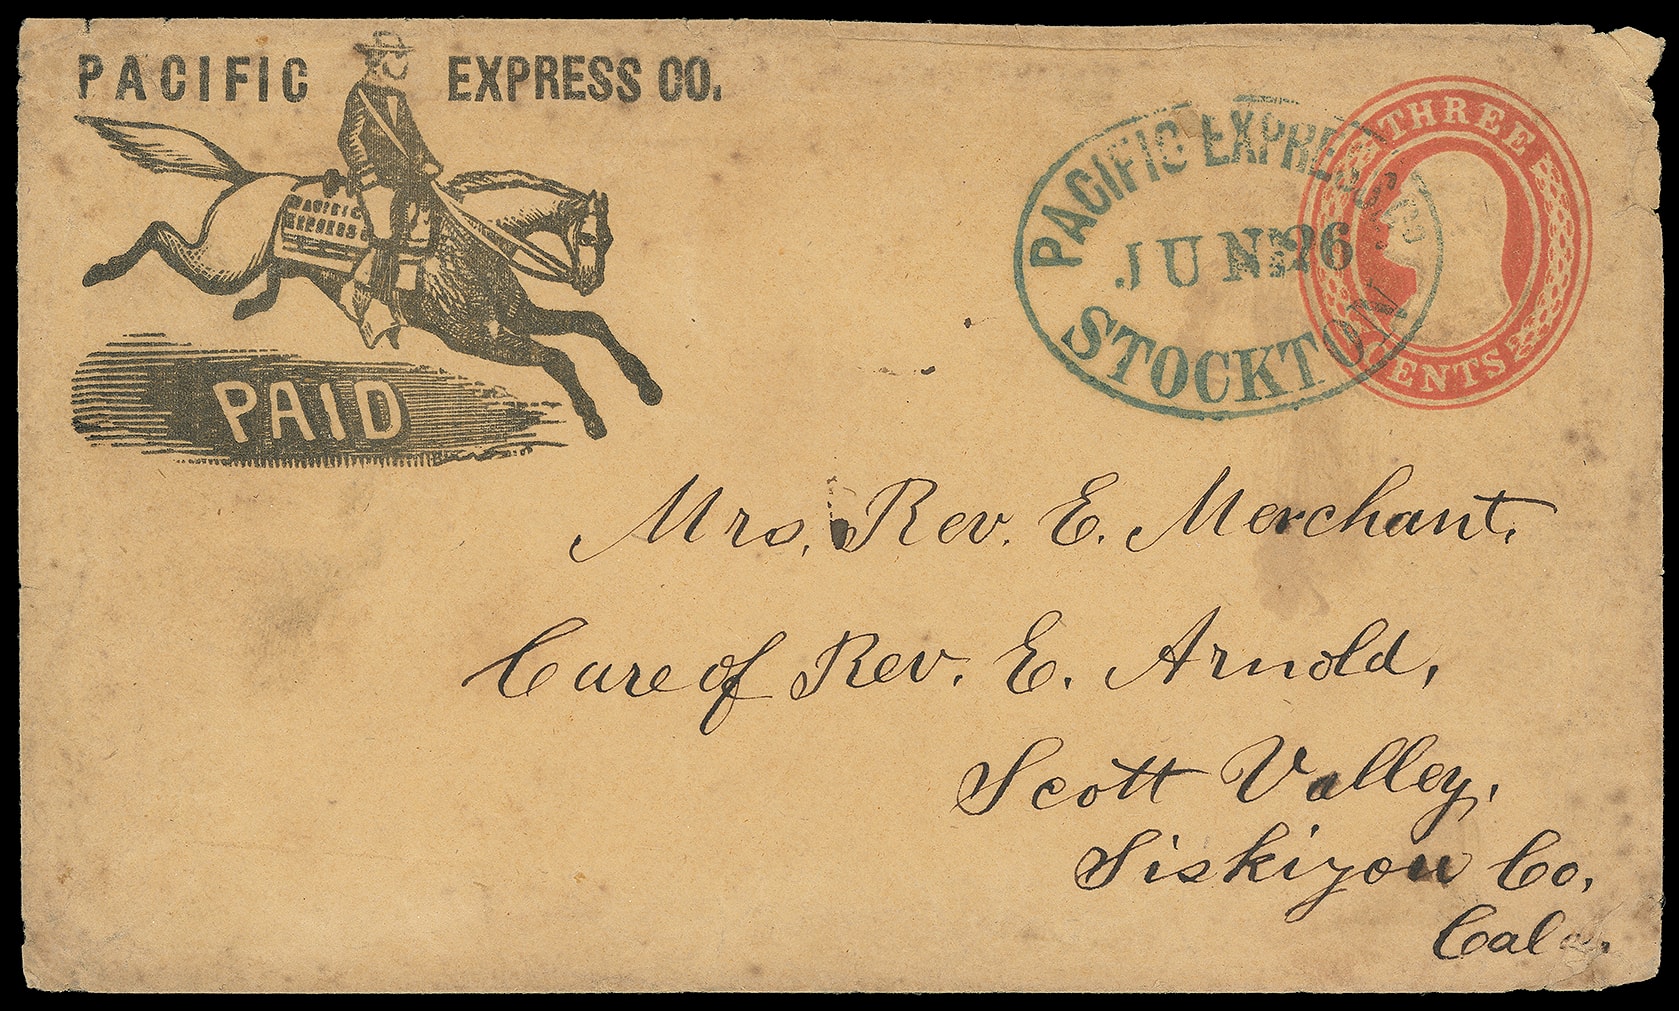 PACIFIC EXPRESS CO.
PACIFIC
EXPRESS
PAID
PACIFIC EXPRESS CO
JUN 26
STOCKTON
THREE
CENTS
Mrs. Rev. E. Merchant.
Care of Rev. E. Arnold,
Scott Valley,
Siskiyou Co.
Cala.